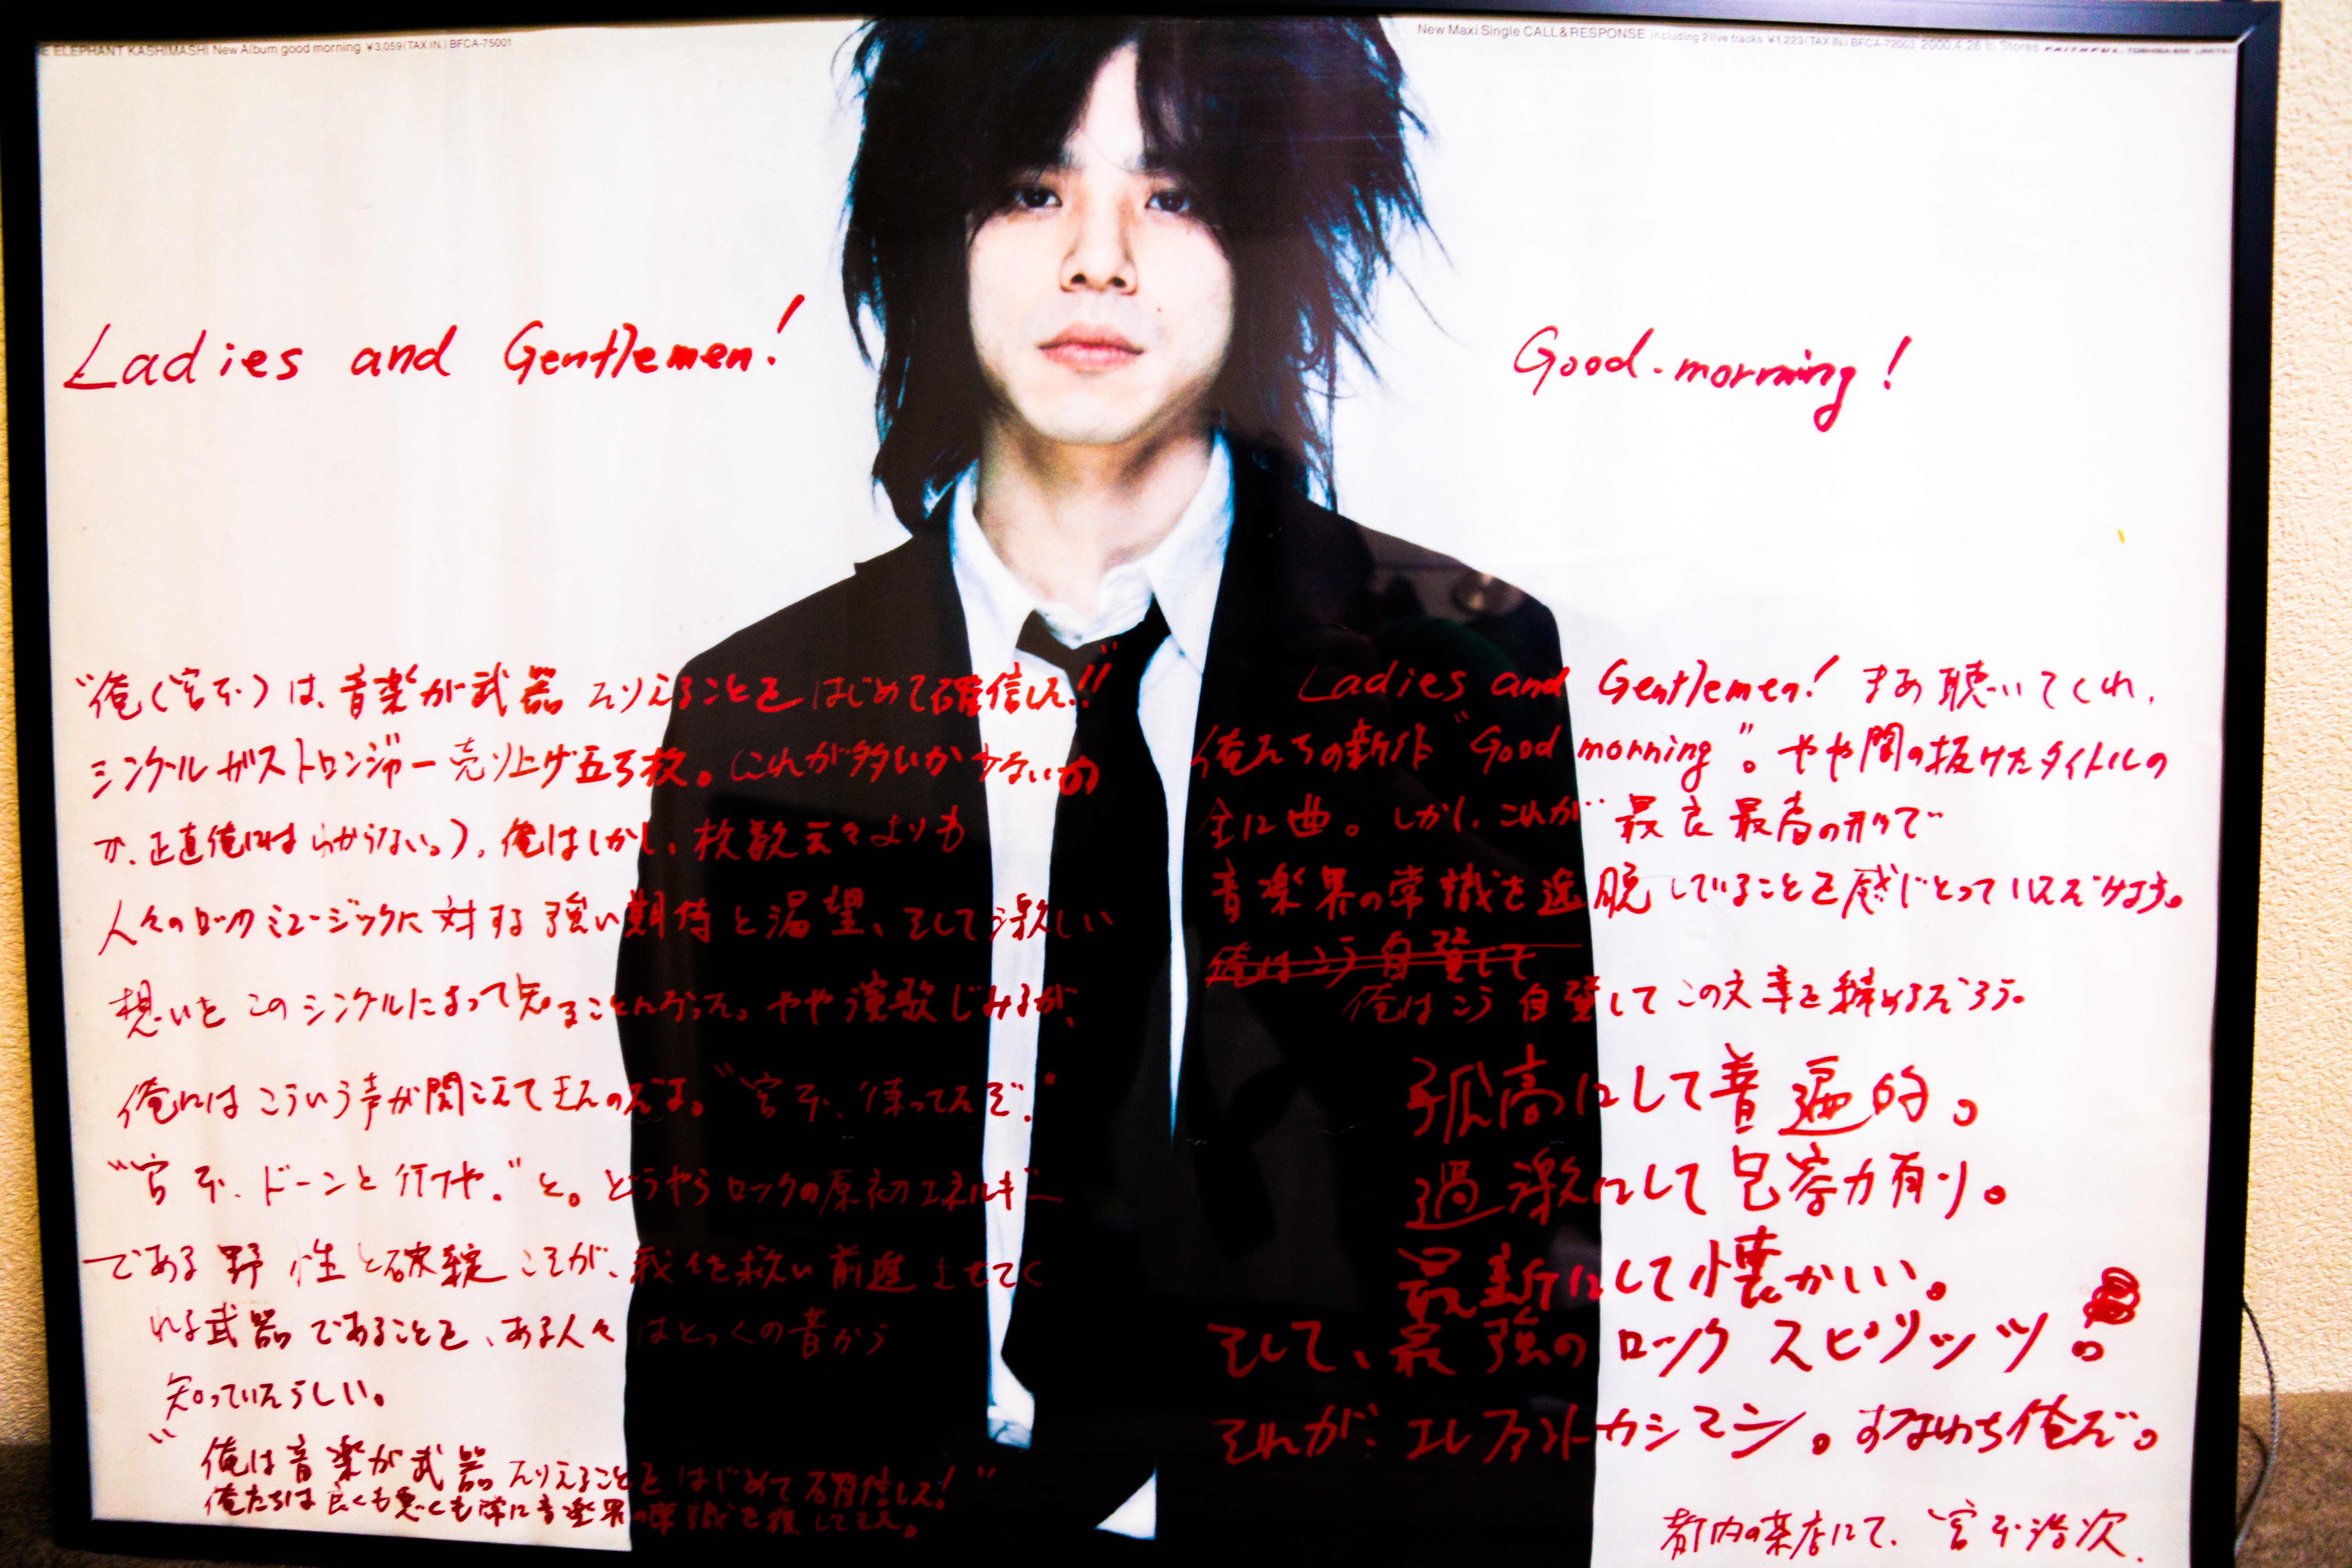 E ELEPHANT KASHIMASHI New Album good morning ¥3,059(TAX IN.) BFCA-75001
New Maxi Single CALL&RESPONSE including 2 live tracks ¥1,223(TAX IN) BFCA-72003 2000.4.26 In Stores
Ladies and Gentlemen!
Good-morning!
"俺(宮本)は、音楽が武器たりえることをはじめて確信した!!"
シングルガストロンジャー売り上げ五万枚。(これが多いか少ないの
か、正直俺にはわからない。)。俺はしかし、枚数云々よりも
人々のロックミュージックに対する強い期待と渇望、そして激しい
想いをこのシングルによって知ることになった。やや演歌じみるが、
俺にはこういう声が聞こえてきたのだよ。"宮本、待ってたぞ。"
"宮本、ドーンと行けや。"と。どうやらロックの原初エネルギー
である野性と破綻こそが、我々を救い前進させてく
れる武器であることを、ある人々はとっくの昔から
知っていたらしい。
"俺は音楽が武器たりえることをはじめて確信した!"
俺たちは良くも悪くも常に音楽界の常識を
Ladies and Gentlemen! まあ聴いてくれ、
俺たちの新作"Good morning"。やや間の抜けたタイトルの
全12曲。しかし、これが"最良最高の形で"
音楽界の常識を逸脱していることを感じとっていただけよう。
俺はこう自賛して
俺はこう自賛してこの文章を締めるだろう。
孤高にして普遍的。
過激にして包容力有り。
最新にして懐かしい。
そして、最強のロックスピリッツ!
それが、エレファントカシマシ。すなわち俺だ。
都内の茶店にて、宮本浩次、